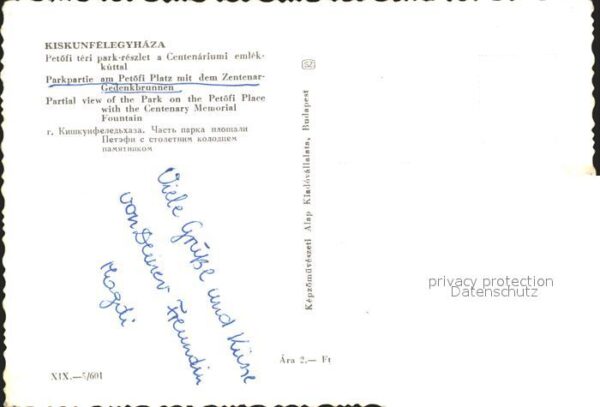 KISKUNFÉLEGYHÁZA
Petőfi téri park-részlet a Centenáriumi emlék-
kúttal
Parkpartie am Petőfi Platz mit dem Zentenar-
Gedenkbrunnen
Partial view of the Park on the Petőfi Place
with the Centenary Memorial
Fountain
г. Кишкунфеледьхаза. Часть парка площади
Петэфи с столетним колодцем
памятником
Viele Grüße und Küsse
von Deiner Freundin
Magdi
Képzőművészeti Alap Kiadóvállalata, Budapest
privacy protection
Datenschutz
Ára 2,— Ft
XIX.—5/601